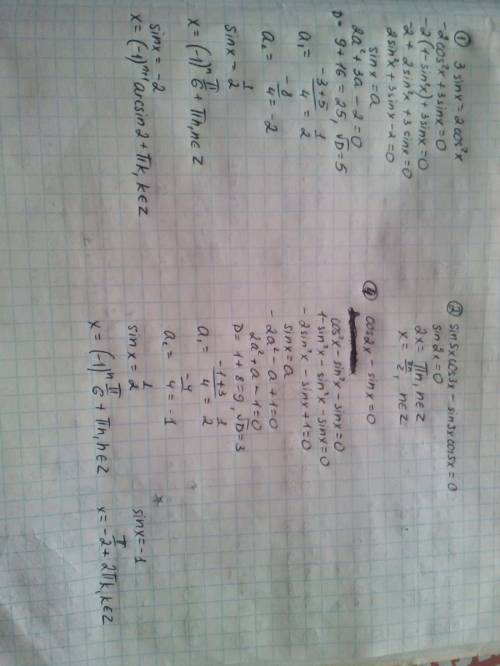 ① 3 sinx = 2 cos²x
-2cos²x + 3sinx = 0
-2(1-sin²x) + 3sinx = 0
-2 + 2sin²x + 3sinx = 0
2sin²x + 3sinx - 2 = 0
sinx = a
2a² + 3a - 2 = 0
D = 9 + 16 = 25, √D = 5
a₁ = (-3+5)/4 = 1/2
a₂ = -8/4 = -2
sinx = 1/2
x = (-1)ⁿ π/6 + πn, n∈z
sinx = -2
x = (-1)ⁿ⁺¹ arcsin2 + πk, k∈z
② sin5x cos3x - sin3x cos5x = 0
sin2x = 0
2x = πn, n∈z
x = πn/2, n∈z
④ cos2x - sinx = 0
cos²x - sin²x - sinx = 0
1 - sin²x - sin²x - sinx = 0
-2sin²x - sinx + 1 = 0
sinx = a
-2a² - a + 1 = 0
2a² + a - 1 = 0
D = 1 + 8 = 9, √D = 3
a₁ = (-1+3)/4 = 1/2
a₂ = -4/4 = -1
sinx = 1/2
x = (-1)ⁿ π/6 + πn, n∈z
sinx = -1
x = -π/2 + 2πk, k∈z